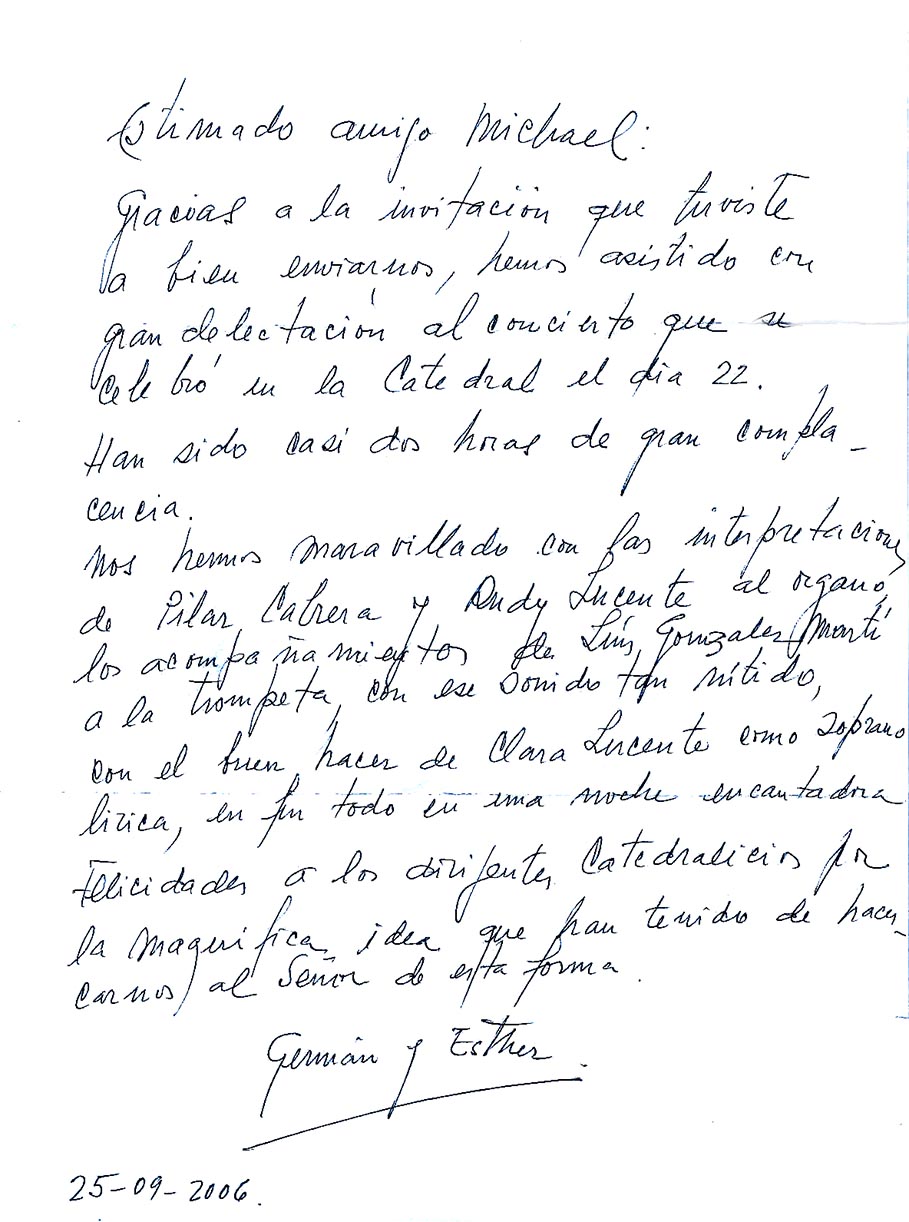 Estimado amigo Michael:
Gracias a la invitación que tuviste
a bien enviarnos, hemos asistido con
gran delectación al concierto que se
celebró en la Catedral el dia 22.
Han sido casi dos horas de gran compla-
cencia.
Nos hemos maravillado con las interpretaciones
de Pilar Cabrera y Andy Lucente al organo,
los acompañamientos de Luís Gonzalez Martí
a la trompeta, con ese sonido tan nítido,
con el buen hacer de Clara Lucente como soprano
lirica, en fin todo en una noche encantadora
Felicidades a los dirigentes Catedralicios por
la magnifica idea que han tenido de hacer-
carnos al Señor de esta forma.
Germán y Esther.
25-09-2006.